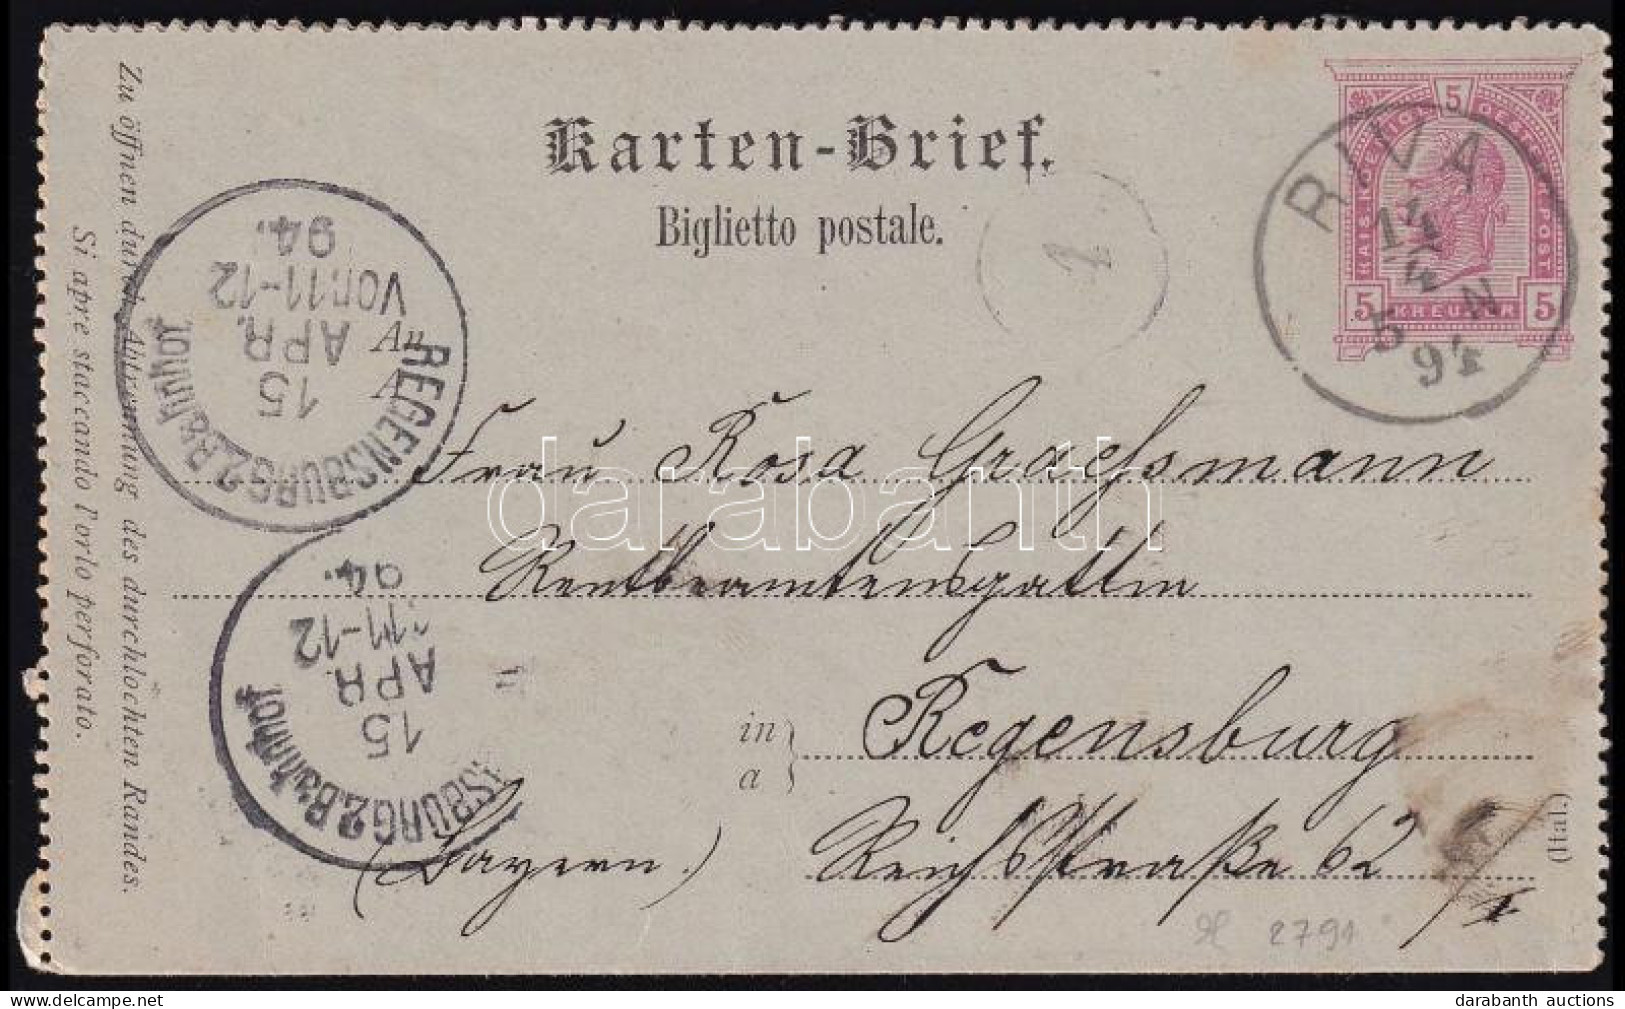 Karten-Brief.
Biglietto postale.
KAIS. KÖNIGL. OESTERR. POST
5
5 KREUZER 5
RIVA
14
4
5 N
94
1
REGENSBURG 2. Bahnhof.
15
APR.
Vor. 11-12
94.
An
A
Frau Rosa
Rentbeamtensgattin
in
a
Regensburg
(Bayern.) Reichsstraße 62/I
15
APR.
11-12
94.
SBURG 2. Bahnhof
Zu öffnen durch Abtrennung des durchlochten Randes.
Si apre staccando l'orlo perforato.
(Ital.)
2791
darabanth
darabanth auctions